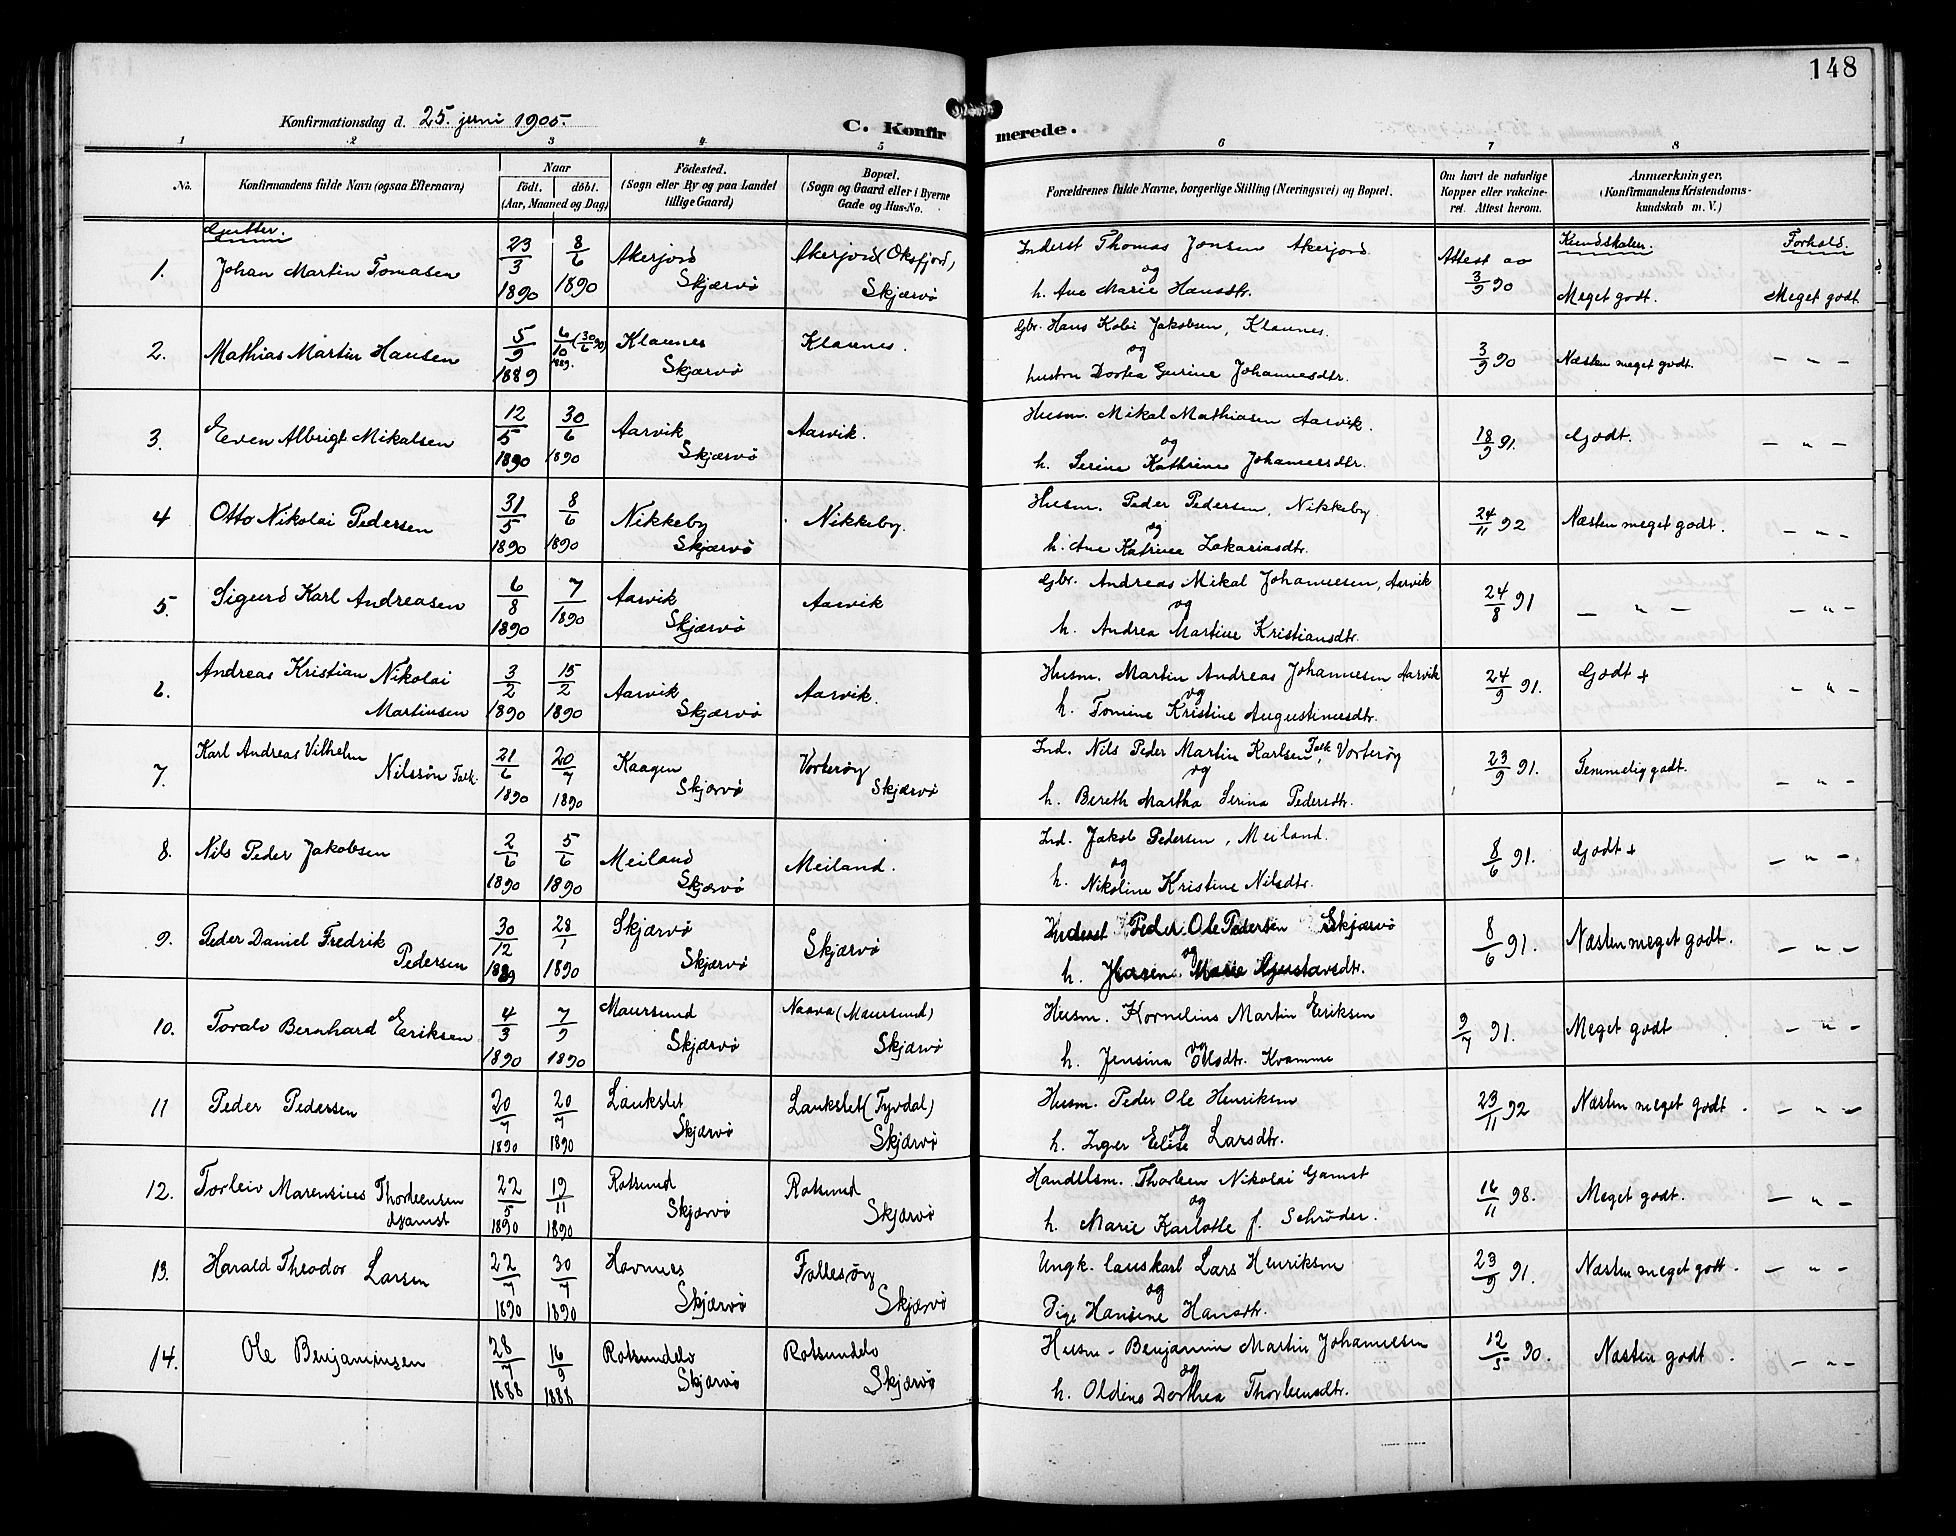 148
Konfirmationsdag d. 25. juni 1905.
C. Konfirmerede.
1 2 3 4 5 6 7 8
No.
Konfirmandens fulde Navn (ogsaa Efternavn)
Naar
födt. döbt.
(Aar, Maaned og Dag)
Födested.
(Sogn eller By og paa Landet
tillige Gaard)
Bopæl.
(Sogn og Gaard eller i Byerne
Gade og Hus-No.
Forældrenes fulde Navne, borgerlige Stilling (Næringsvei) og Bopæl.
Om havt de naturlige
Kopper eller vakcine-
ret. Attest herom.
Anmærkninger.
(Konfirmandens Kristendoms-
kundskab m. V.)
Gutter.
Kundskaber. Forhold.
1. Johan Martin Tomasen 23/3 1890 8/6 1890 Akerjord Skjærvö Akerjord (Oksfjord) Skjærvö
Inderst Thomas Jonsen Akerjord
og
h. Ane Marie Hansdtr.
Attest av 3/9 90 Meget godt. Meget godt
2. Mathias Martin Hansen 5/9 1889 6/10 1889. (30/6 90) Klaunes Skjærvö Klaunes.
Gbr. Hans Kobi Jakobsen, Klaunes.
og
hustru Dortea Gurine Johannesdtr.
3/9 90 Næsten meget godt. — " —
3. Even Albrigt Mikalsen 12/5 1890 30/6 1890 Aarvik Skjærvö Aarvik.
Husm. Mikal Mathiasen Aarvik.
og
h. Serine Kathrine Johannesdtr.
18/9 91. Godt. — " —
4 Otto Nikolai Pedersen 31/5 1890 8/6 1890 Nikkeby Skjærvö Nikkeby.
Husm. Peder Pedersen, Nikkeby.
og
h. Ane Katrine Zakariasdtr.
24/11 92 Næsten meget godt. — " —
5. Sigurd Karl Andreasen 6/8 1890 7/ 1890 Aarvik Skjærvö Aarvik
Gbr. Andreas Mikal Johannesen, Aarvik
og
h. Andrea Martine Kristiansdtr.
24/8 91 — " — — " —
6. Andreas Kristian Nikolai Martinsen 3/2 1890 15/2 1890 Aarvik Skjærvö Aarvik.
Husm. Martin Andreas Johannesen Aarvik
og
h. Tomine Kristine Augustinusdtr.
24/9 91. Godt + — " —
7. Karl Andreas Vilhelm Nilssön Falk. 21/6 1890 20/7 1890 Kaagen Skjærvö Vorteröy Skjærvö
Ind. Nils Peder Martin Karlsen Falk, Vorteröy
og
h. Bereth Martha Serina Pedersdtr.
23/9 91. Temmelig godt. — " —
8. Nils Peder Jakobsen 2/6 1890 5/6 1890 Meiland Skjærvö Meiland.
Ind. Jakob Pedersen, Meiland.
og
h. Nikoline Kristine Nilsdtr.
8/6 91. Godt + — " —
9. Peder Daniel Fredrik Pedersen 30/12 1889 28/1 1890 Skjærvö Skjærvö Skjærvö
Inderst Peder Ole Pedersen Skjærvö
og
h. Karen Marie Gustavsdtr.
8/6 91. Næsten meget godt. — " —
10. Toralv Bernhard Eriksen 4/3 1890 7/9 1890 Maursund Skjærvö Naava (Maursund) Skjærvö
Husm. Kornelius Martin Eriksen
og
h. Jensina Olsdtr. Kvamme
9/7 91. Meget godt — " —
11 Peder Pedersen 20/7 1890 20/7 1890 Laukslet Skjærvö Laukslet (Tyvdal) Skjærvö
Husm. Peder Ole Henriksen
og
h. Inger Elise Larsdtr.
23/11 92 Næsten meget godt. — " —
12. Torleiv Marensius Thorleensen Gamst 22/5 1890 19/11 1890 Rotsund Skjærvö Rotsund Skjærvö
Handelsm. Thorleen Nikolai Gamst
og
h. Marie Karlotte f. Schröder.
16/11 98. Meget godt. — " —
13. Harald Theodor Larsen 22/7 1890 30/7 1890 Havnnes Skjærvö Follesöy Skjærvö
Ungk. lauskarl Lars Henriksen
og
Pige Hansine Hansdtr.
23/9 91. Næsten meget godt. — " —
14. Ole Benjaminsen 28/7 1888 16/9 1888 Rotsundelv Skjærvö Rotsundelv Skjærvö
Husm. Benjamin Martin Johannesen
og
h. Oldine Dorthea Thorleensdtr.
12/5 90. Næsten godt. — " —